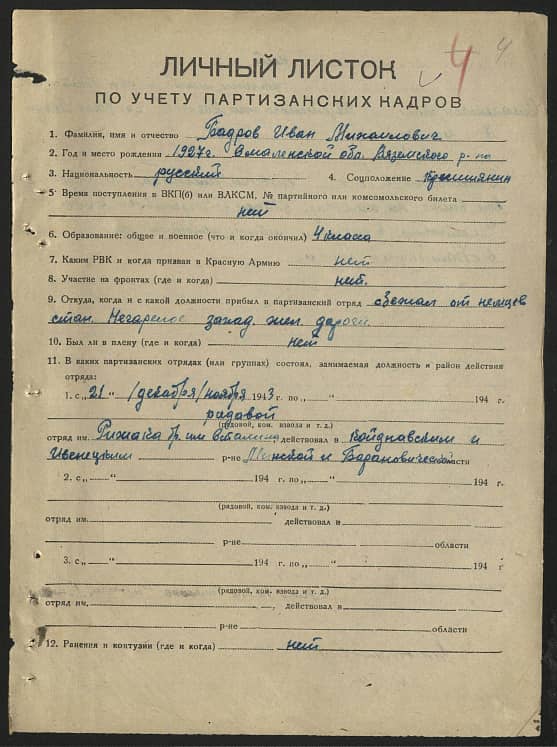 4 4
ЛИЧНЫЙ ЛИСТОК
ПО УЧЕТУ ПАРТИЗАНСКИХ КАДРОВ
1. Фамилия, имя и отчество Бодров Иван Михайлович
2. Год и место рождения 1927г. Смаленской обл. Вяземского р-на
3. Национальность русский 4. Соцположение Кресттянин
5. Время поступления в ВКП(б) или ВЛКСМ, № партийного или комсомольского билета
нет
6. Образование: общее и военное (что и когда окончил) 4 класса
7. Каким РВК и когда призван в Красную Армию нет
8. Участие на фронтах (где и когда) нет.
9. Откуда, когда и с какой должности прибыл в партизанский отряд сбежал от немцев
стан. Негарелое запад. жел. дороги.
10. Был ли в плену (где и когда) нет
11. В каких партизанских отрядах (или группах) состоял, занимаемая должность и район действия
отряда:
1. с „21 “ /декабря/ ноября 1943 г. по „ “ 194 г.
рядовой
(рядовой, ком. взвода и т. д.)
отряд им. бр. им Сталина действовал в Койднавским и
Ивенецким р-не Минской и Барановической области
2. с „ “ 194 г. по „ “ 194 г.
(рядовой, ком. взвода и т. д.)
отряд им. действовал в
р-не области
3. с „ “ 194 г. по „ “ 194 г
(рядовой, ком. взвода и т. д.)
отряд им. действовал в
р-не области
12. Ранения и контузии (где и когда) нет